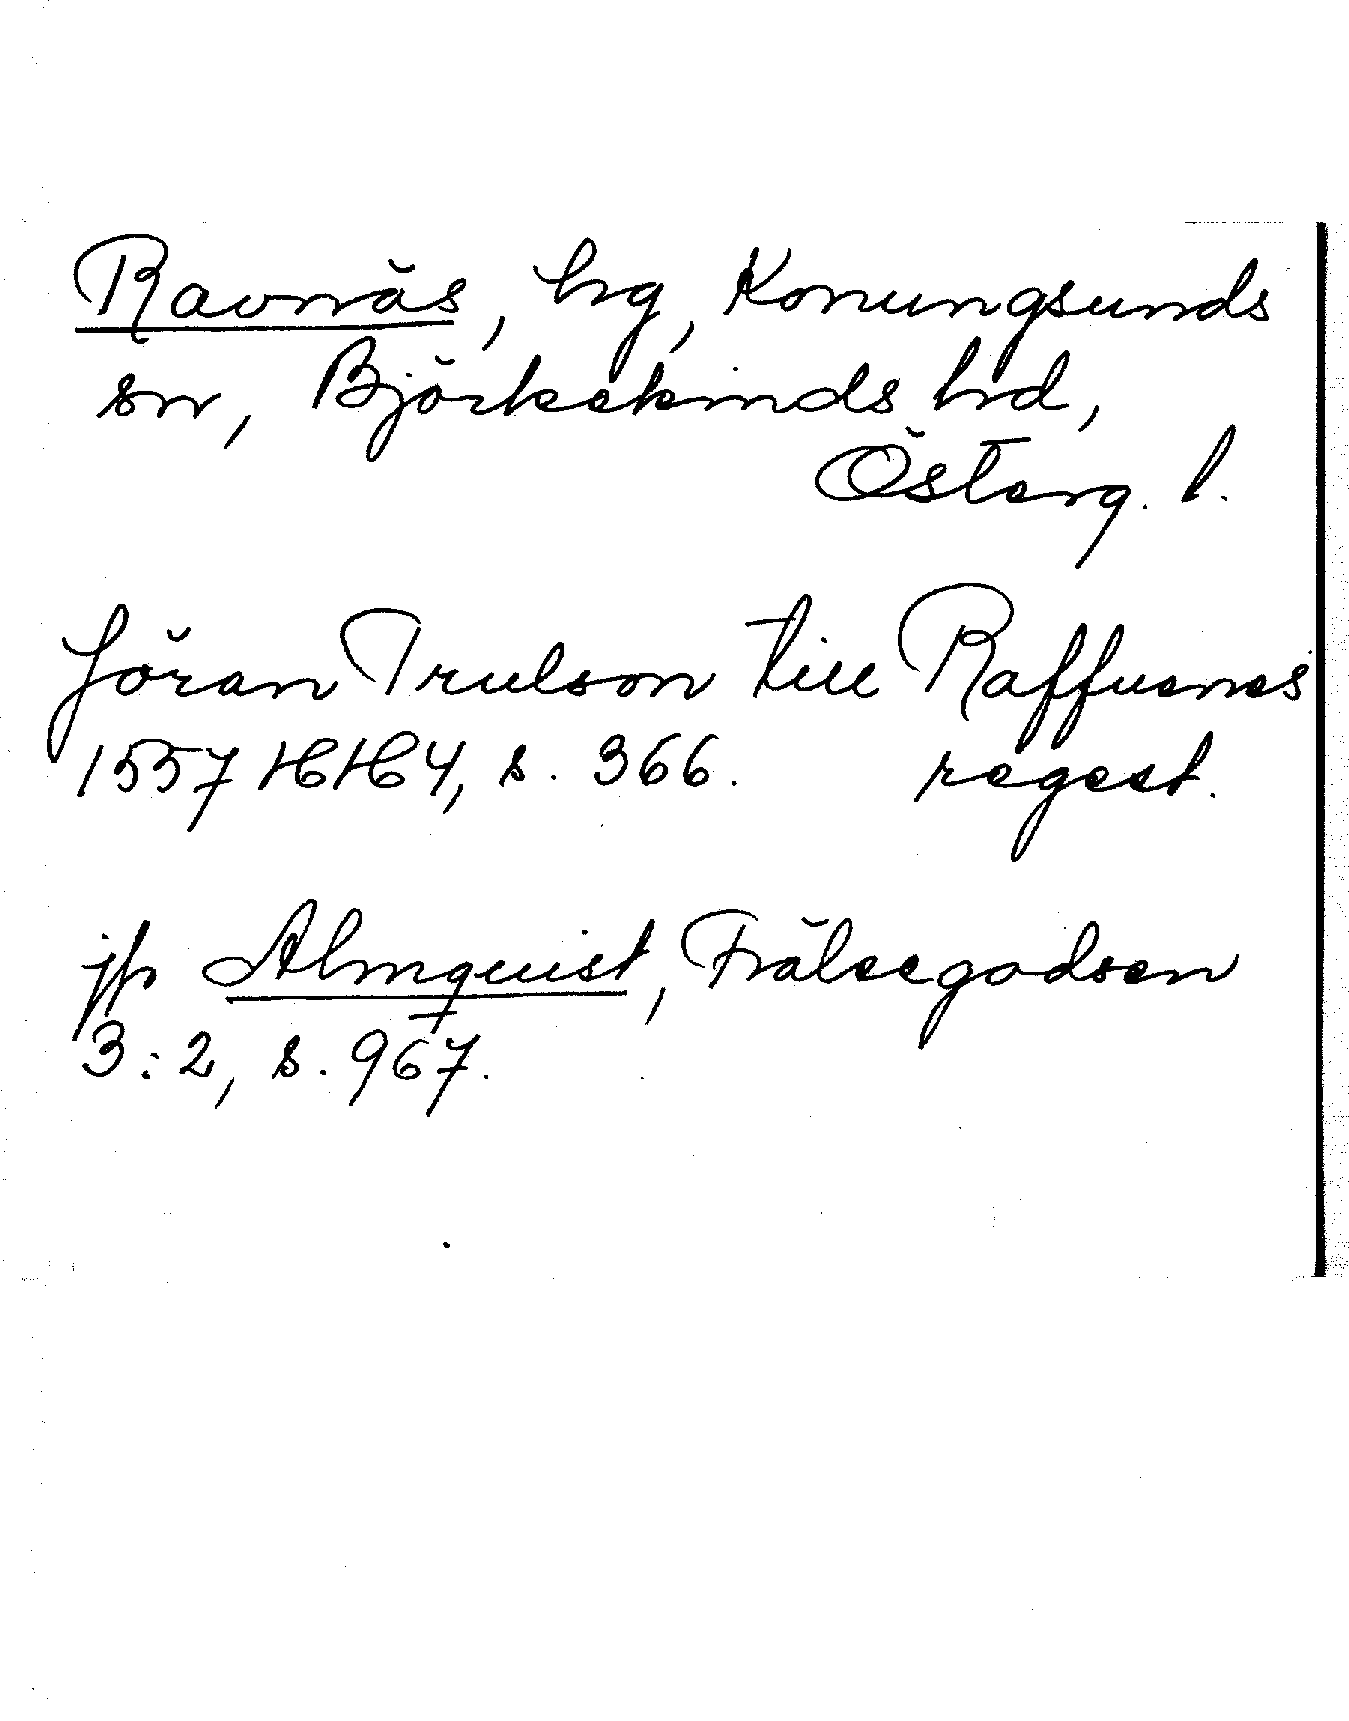 Ravnäs, hg, Konungsunds
sn, Björkekinds hd,
Österg. l.
Jöran Trulson till Raffuenes
1557 HH 4, s. 366. regest.
jfr Almquist, Frälsegodsen
3:2, s. 967.